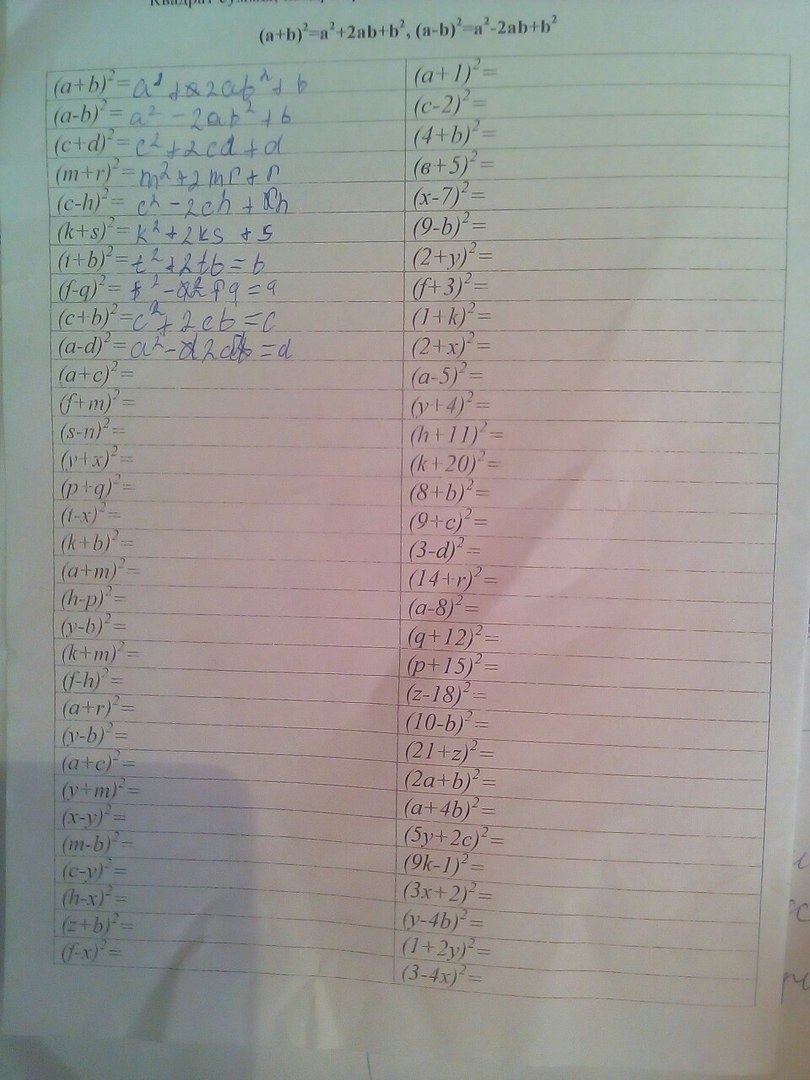 (a+b)²=a²+2ab+b², (a-b)²=a²-2ab+b²
(a+b)²= a² + 2ab² + b
(a-b)²= a² - 2ab² + b
(c+d)²= c² + 2cd + d
(m+r)²= m² + 2mr + r
(c-h)²= c² - 2ch + h
(k+s)²= k² + 2ks + s
(t+b)²= t² + 2tb = b
(f-q)²= f² - 2fq = q
(c+b)²= c² + 2cb = c
(a-d)²= a² - 2ad = d
(a+c)²=
(f+m)²=
(s-n)²=
(y+x)²=
(p+q)²=
(t-x)²=
(k+b)²=
(a+m)²=
(h-p)²=
(y-b)²=
(k+m)²=
(f-h)²=
(a+r)²=
(y-b)²=
(a+c)²=
(y+m)²=
(x-y)²=
(m-b)²=
(c-y)²=
(h-x)²=
(z+b)²=
(f-x)²=
(a+1)²=
(c-2)²=
(4+b)²=
(в+5)²=
(x-7)²=
(9-b)²=
(2+y)²=
(f+3)²=
(1+k)²=
(2+x)²=
(a-5)²=
(y+4)²=
(h+11)²=
(k+20)²=
(8+b)²=
(9+c)²=
(3-d)²=
(14+r)²=
(a-8)²=
(q+12)²=
(p+15)²=
(z-18)²=
(10-b)²=
(21+z)²=
(2a+b)²=
(a+4b)²=
(5y+2c)²=
(9k-1)²=
(3x+2)²=
(y-4b)²=
(1+2y)²=
(3-4x)²=